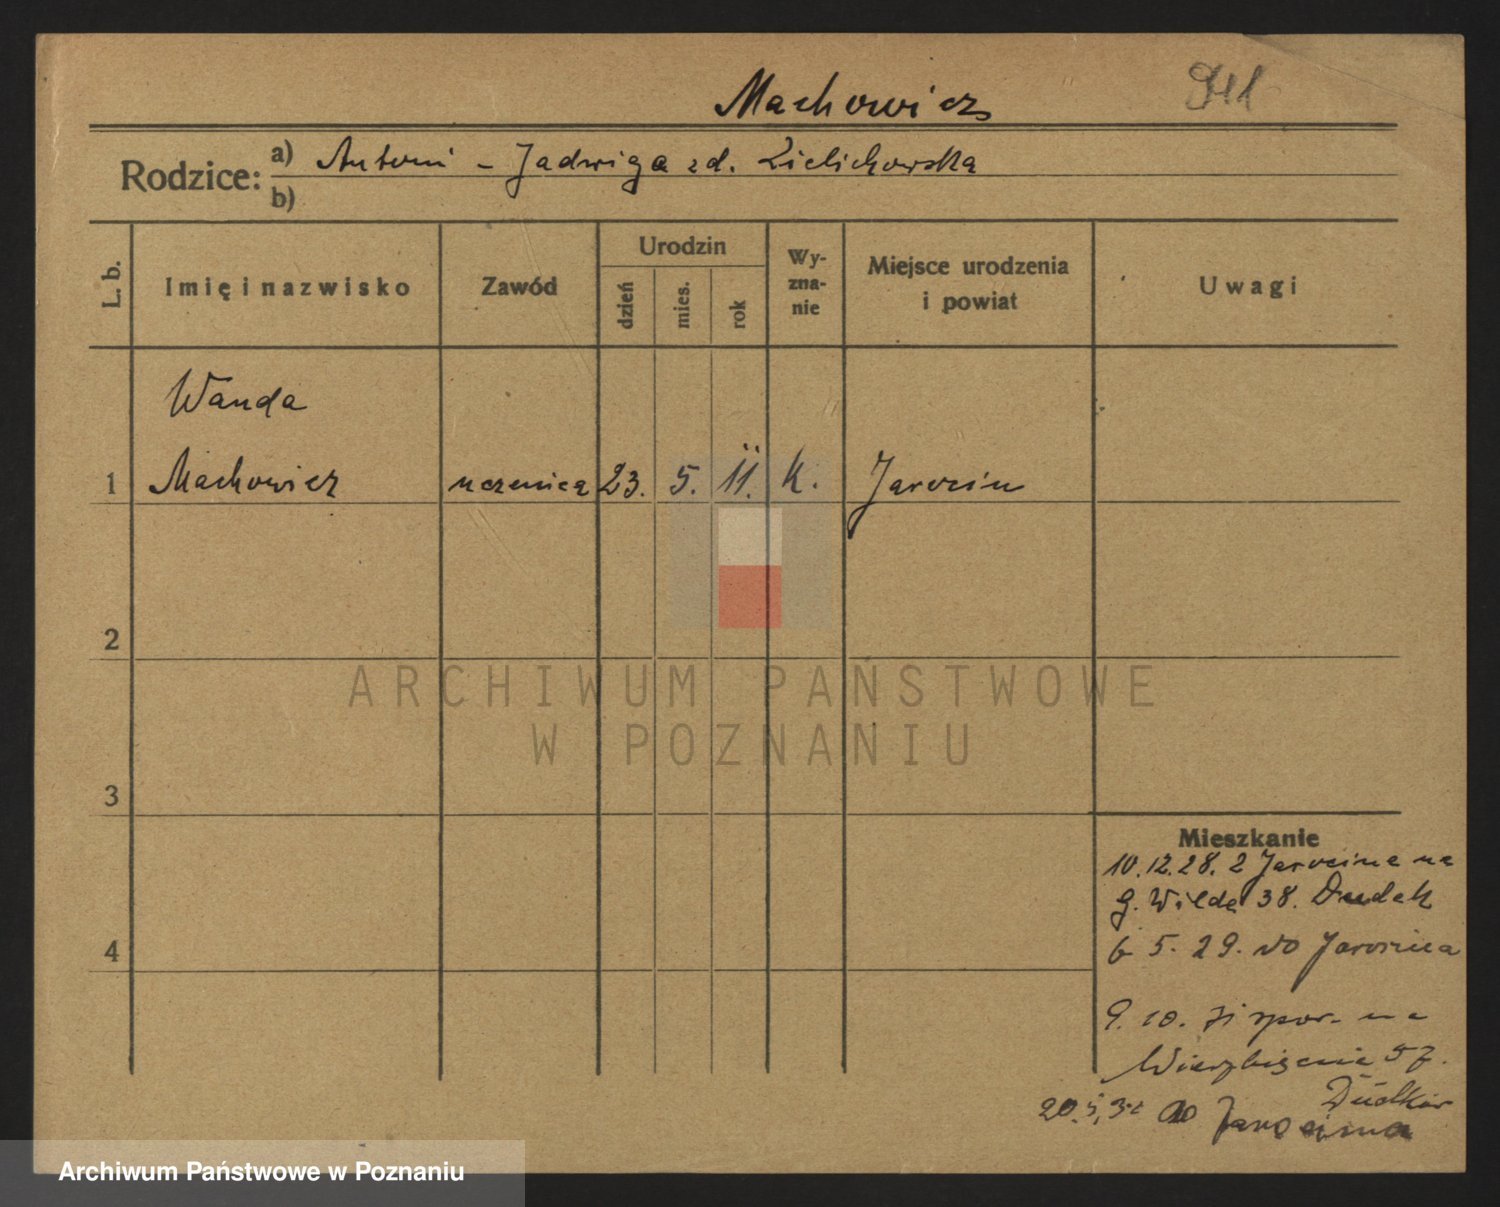 Machowicz
Rodzice: a) Antoni - Jadwiga zd. Zielichowska
b)
L. b. Imię i nazwisko Zawód Urodzin dzień mies. rok Wyznanie Miejsce urodzenia i powiat Uwagi
Wanda
1 Machowicz uczenica 23. 5. 11. k. Jarocin
2
3
4
Mieszkanie
10.12.28. z Jarocina na
G. Wildę 38. Dudek
6 5. 29. do Jarocina
9. 10. 31 spow. na
Wierzbięcie 57.
20. 5. 32 do Jarocina
ARCHIWUM PAŃSTWOWE
W POZNANIU
Archiwum Państwowe w Poznaniu